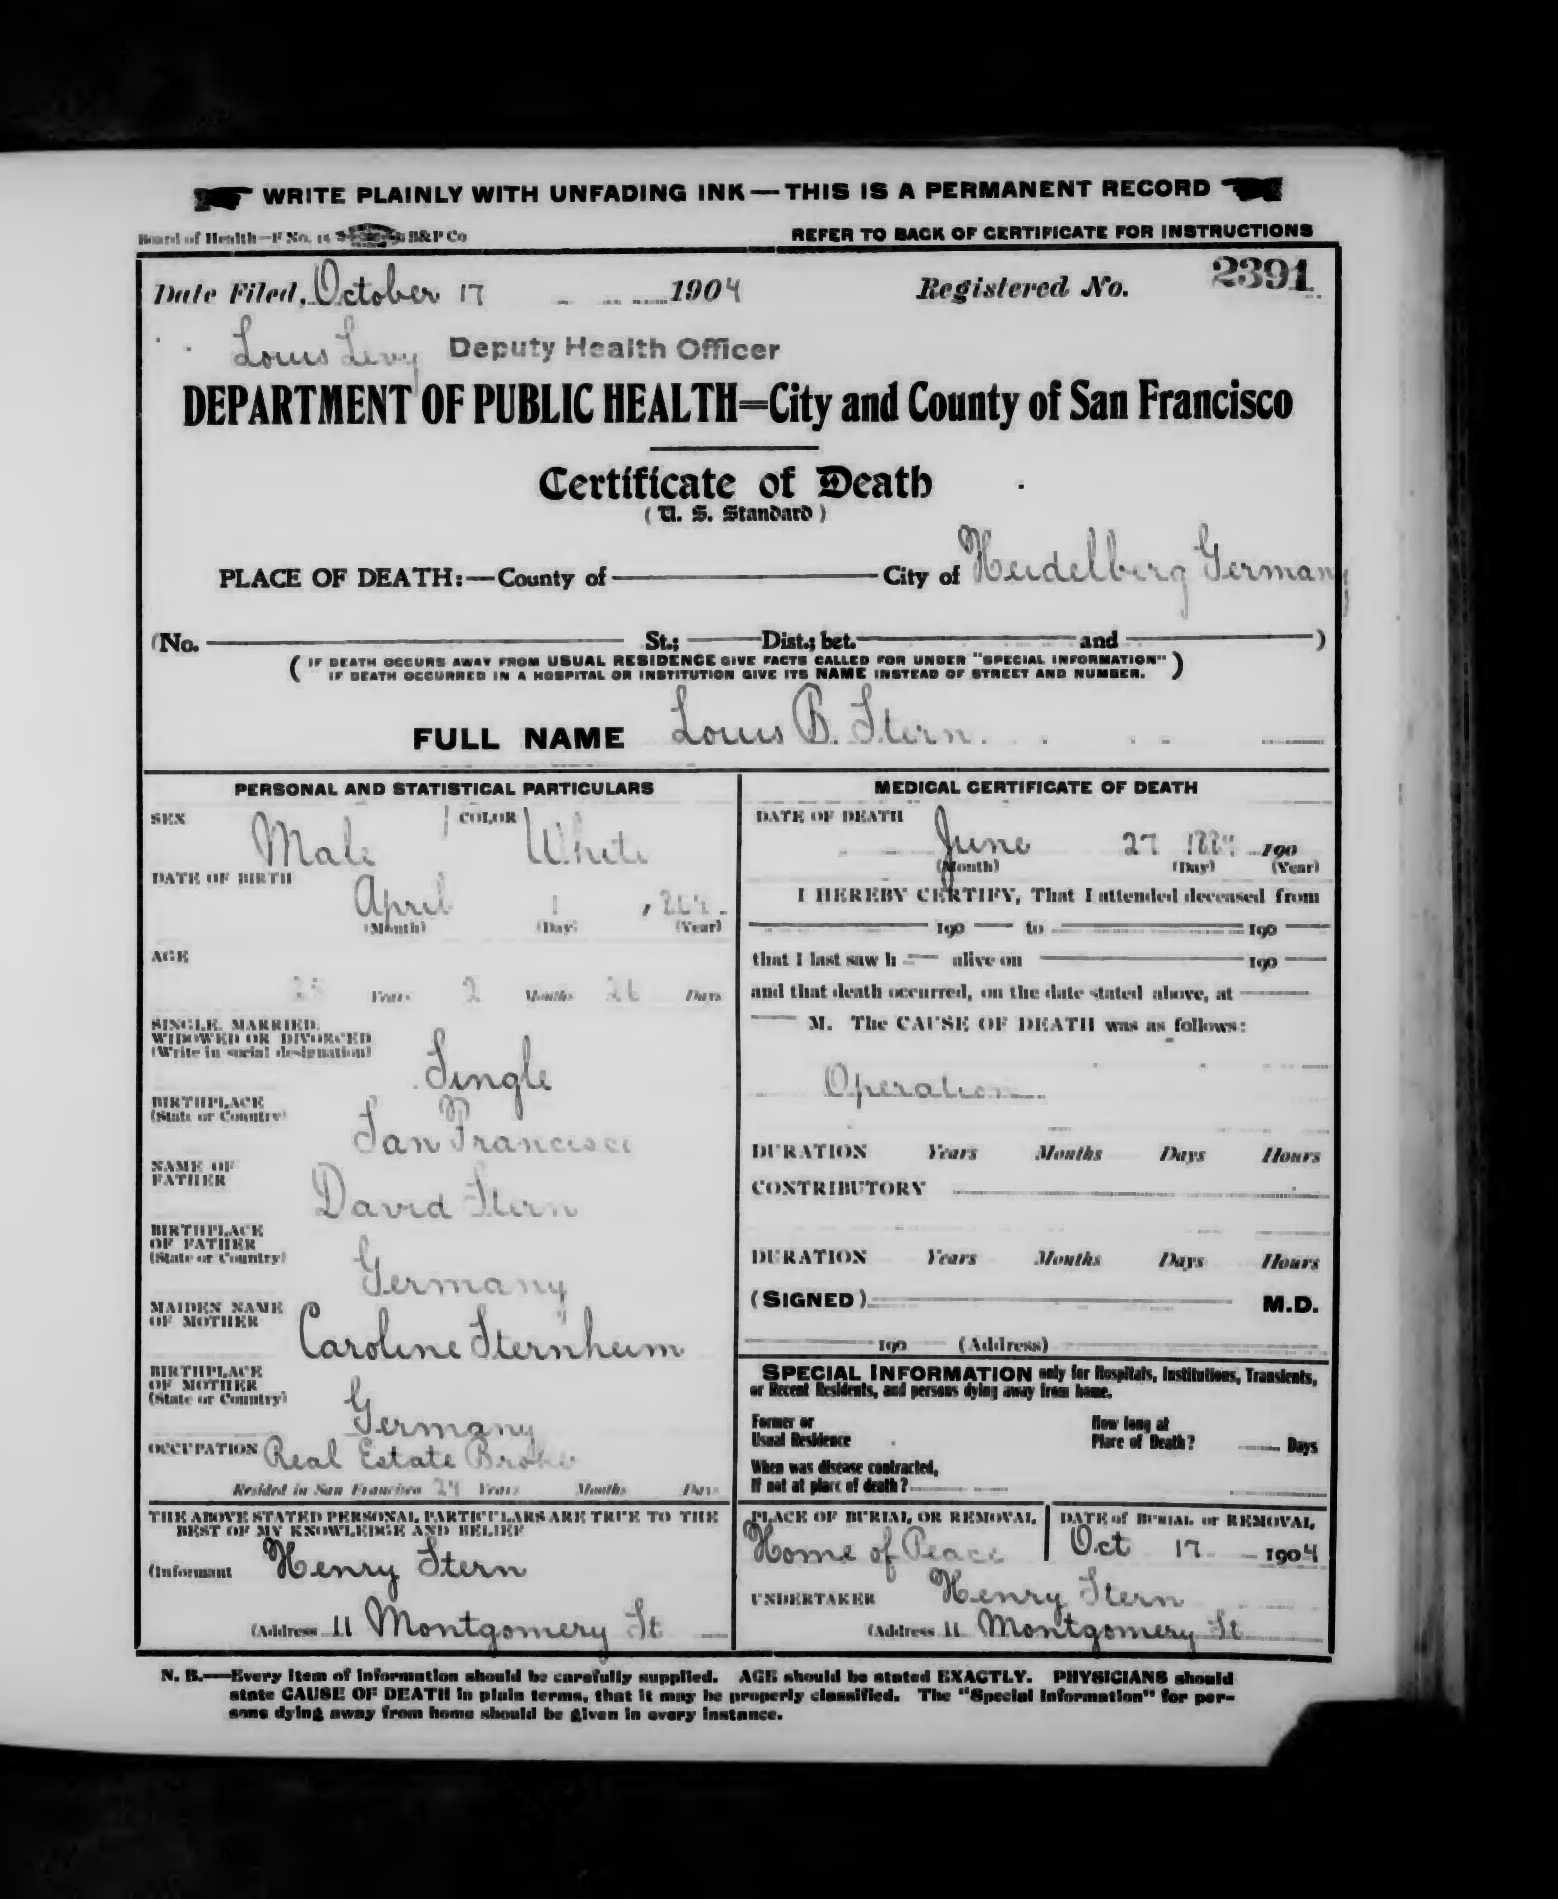 WRITE PLAINLY WITH UNFADING INK—THIS IS A PERMANENT RECORD
Board of Health—F No. 15 B&P Co
REFER TO BACK OF CERTIFICATE FOR INSTRUCTIONS
Date Filed, October 17 1904 Registered No. 2391
Louis Levy Deputy Health Officer
DEPARTMENT OF PUBLIC HEALTH=City and County of San Francisco
Certificate of Death
( U. S. Standard )
PLACE OF DEATH:—County of City of Heidelberg Germany
(No. St.; Dist.; bet. and )
( IF DEATH OCCURS AWAY FROM USUAL RESIDENCE GIVE FACTS CALLED FOR UNDER "SPECIAL INFORMATION"
IF DEATH OCCURRED IN A HOSPITAL OR INSTITUTION GIVE ITS NAME INSTEAD OF STREET AND NUMBER. )
FULL NAME Louis B. Stern.
PERSONAL AND STATISTICAL PARTICULARS
SEX Male COLOR White
DATE OF BIRTH
April 1
(Month) (Day) (Year)
AGE
Years 2 Months 26 Days
SINGLE, MARRIED,
WIDOWED OR DIVORCED
(Write in social designation)
Single
BIRTHPLACE
(State or Country)
San Francisco
NAME OF
FATHER
David Stern
BIRTHPLACE
OF FATHER
(State or Country)
Germany
MAIDEN NAME
OF MOTHER
Caroline Sternheim
BIRTHPLACE
OF MOTHER
(State or Country)
Germany
OCCUPATION Real Estate Broker
Resided in San Francisco 24 Years Months Days
THE ABOVE STATED PERSONAL PARTICULARS ARE TRUE TO THE
BEST OF MY KNOWLEDGE AND BELIEF
(Informant Henry Stern
(Address 11 Montgomery St
MEDICAL CERTIFICATE OF DEATH
DATE OF DEATH
June 27 1884 190
(Month) (Day) (Year)
I HEREBY CERTIFY, That I attended deceased from
190 to 190
that I last saw h alive on 190
and that death occurred, on the date stated above, at
M. The CAUSE OF DEATH was as follows:
Operation
DURATION Years Months Days Hours
CONTRIBUTORY
DURATION Years Months Days Hours
(SIGNED) M.D.
190 (Address)
SPECIAL INFORMATION only for Hospitals, Institutions, Transients,
or Recent Residents, and persons dying away from home.
Former or
Usual Residence
How long at
Place of Death? Days
When was disease contracted,
If not at place of death?
PLACE OF BURIAL OR REMOVAL
Home of Peace
DATE of BURIAL or REMOVAL
Oct 17 1904
UNDERTAKER Henry Stern
(Address 11 Montgomery St
N. B.—Every item of information should be carefully supplied. AGE should be stated EXACTLY. PHYSICIANS should
state CAUSE OF DEATH in plain terms, that it may be properly classified. The "Special Information" for per-
sons dying away from home should be given in every instance.